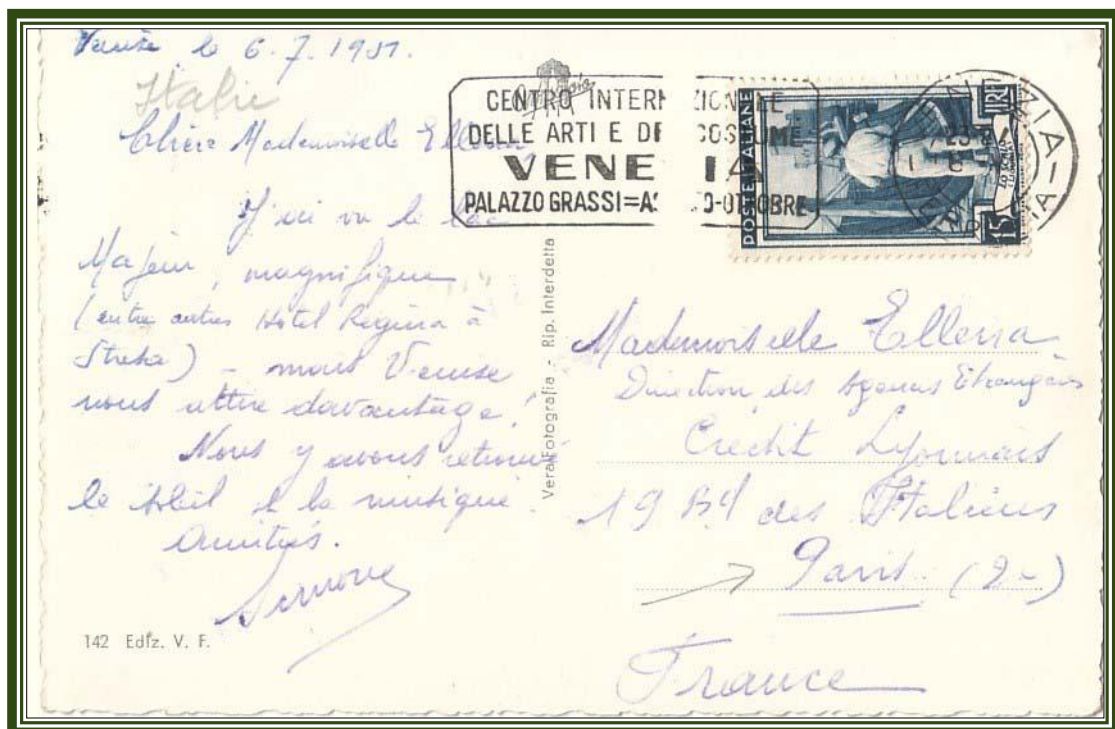 Venise, le 6.7.1951.
Italie
Chère Mademoiselle Ellena
J'ai vu le lac
Majeur, magnifique
(entre autres Hôtel Regina à
Stresa) – mais Venise
nous attire davantage!
Nous y avons retrouvé
le soleil et la musique.
Amitiés.
Simone
142 Ediz. V. F.
Vera Fotografia - Rip. Interdetta
CENTRO INTERN ZIONALE
DELLE ARTI E DE COSTUME
VENE IA
PALAZZO GRASSI=A TO-OTTOBRE
POSTE ITALIANE
LIRE
15
Mademoiselle Ellena
Direction des Agences Etrangères
Crédit Lyonnais
19 Bd des Italiens
Paris (2e)
France